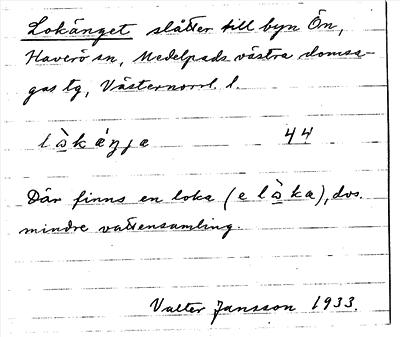 Lokänget slåtter till byn Ön,
Haverö sn, Medelpads västra domsa-
gas tg, Västernorrl. l.
lò̲káŋja 44
Där finns en loka (e lò̲ka), dvs.
mindre vattensamling.
Valter Jansson 1933.